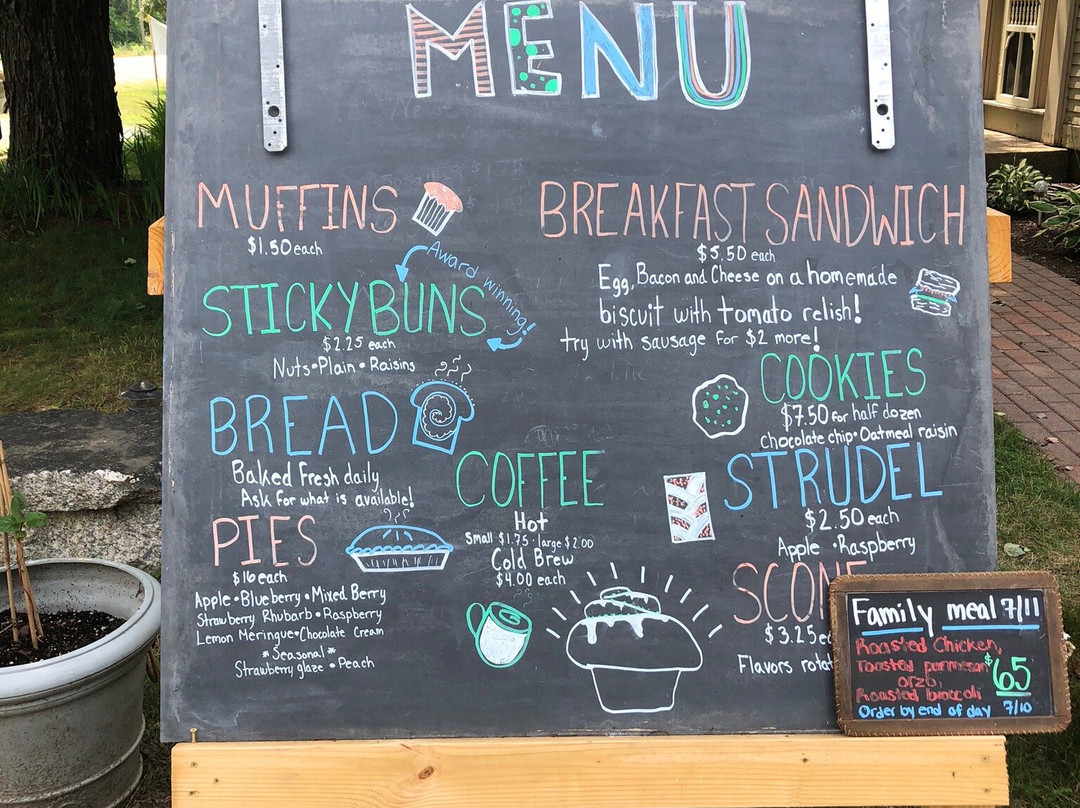 MENU
MUFFINS
$1.50 each
Award winning!
STICKY BUNS
$2.25 each
Nuts • Plain • Raisins
BREAD
Baked Fresh daily
Ask for what is available!
PIES
$16 each
Apple • Blueberry • Mixed Berry
Strawberry Rhubarb • Raspberry
Lemon Meringue • Chocolate Cream
*Seasonal*
Strawberry glaze • Peach
COFFEE
Hot
Small $1.75 • large $2.00
Cold Brew
$4.00 each
BREAKFAST SANDWICH
$5.50 each
Egg, Bacon and Cheese on a homemade
biscuit with tomato relish!
try with sausage for $2 more!
COOKIES
$7.50 for half dozen
chocolate chip • Oatmeal raisin
STRUDEL
$2.50 each
Apple • Raspberry
SCONE
$3.25
Flavors
Family meal 7/11
Roasted Chicken,
Toasted parmesan
orzo,
Roasted broccoli
$65
Order by end of day 7/10